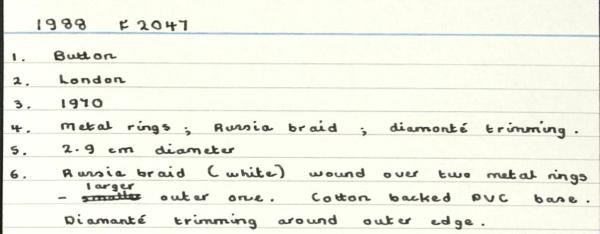 1988 F 2047
1. Button
2. London
3. 1970
4. Metal rings ; Russia braid ; diamonté trimming.
5. 2.9 cm diameter
6. Russia braid (white) wound over two metal rings
larger
- smaller outer one. Cotton backed PVC base.
Diamanté trimming around outer edge.